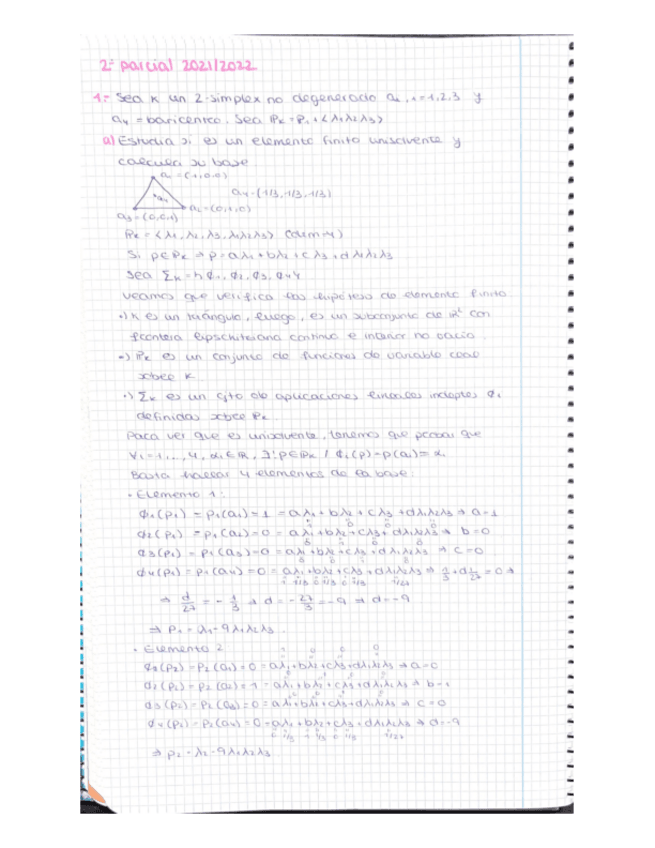 2º parcial 2021/2022
1- Sea K un 2-simplex no degenerado ai, i=1,2,3 y
a4 = baricentro. Sea PK = P1 + <λ1λ2λ3>
a) Estudia si es un elemento finito unisolvente y
calcula su base
a1 = (1,0,0)
a4 = (1/3, 1/3, 1/3)
a4
a2 = (0,1,0)
a3 = (0,0,1)
PK = <λ1, λ2, λ3, λ1λ2λ3> (dim=4)
Si p∈PK ⇒ p = aλ1 + bλ2 + cλ3 + dλ1λ2λ3
Sea ΣK = {ϕ1, ϕ2, ϕ3, ϕ4}
Veamos que verifica las hipótesis de elemento finito
·) K es un triángulo, luego, es un subconjunto de R² con
frontera lipschitziana continua e interior no vacío.
·) PK es un conjunto de funciones de variable real
sobre K
·) ΣK es un cjto de aplicaciones lineales indeptes ϕi
definidas sobre PK.
Para ver que es unisolvente, tenemos que probar que
∀i=1,...,4, αi∈R, ∃!p∈PK / ϕi(p)=p(ai)=αi
Basta hallar 4 elementos de la base:
· Elemento 1:
ϕ1(p1) = p1(a1) = 1 = aλ1 + bλ2 + cλ3 + dλ1λ2λ3 ⇒ a=1
ϕ2(p1) = p1(a2) = 0 = aλ1 + bλ2 + cλ3 + dλ1λ2λ3 ⇒ b=0
ϕ3(p1) = p1(a3) = 0 = aλ1 + bλ2 + cλ3 + dλ1λ2λ3 ⇒ c=0
ϕ4(p1) = p1(a4) = 0 = aλ1 + bλ2 + cλ3 + dλ1λ2λ3 ⇒ 1/3 + d 1/27 = 0 ⇒
1 1/3 0 1/3 0 1/3 1/27
⇒ d/27 = -1/3 ⇒ d = -27/3 = -9 ⇒ d=-9
⇒ p1 = λ1 - 9λ1λ2λ3.
· Elemento 2
1 0 0 0
ϕ1(p2) = p2(a1) = 0 = aλ1 + bλ2 + cλ3 + dλ1λ2λ3 ⇒ a=0
ϕ2(p2) = p2(a2) = 1 = aλ1 + bλ2 + cλ3 + dλ1λ2λ3 ⇒ b=1
ϕ3(p2) = p2(a3) = 0 = aλ1 + bλ2 + cλ3 + dλ1λ2λ3 ⇒ c=0
ϕ4(p2) = p2(a4) = 0 = aλ1 + bλ2 + cλ3 + dλ1λ2λ3 ⇒ d=-9
0 1/3 1 1/3 0 1/3 1/27
⇒ p2 = λ2 - 9λ1λ2λ3